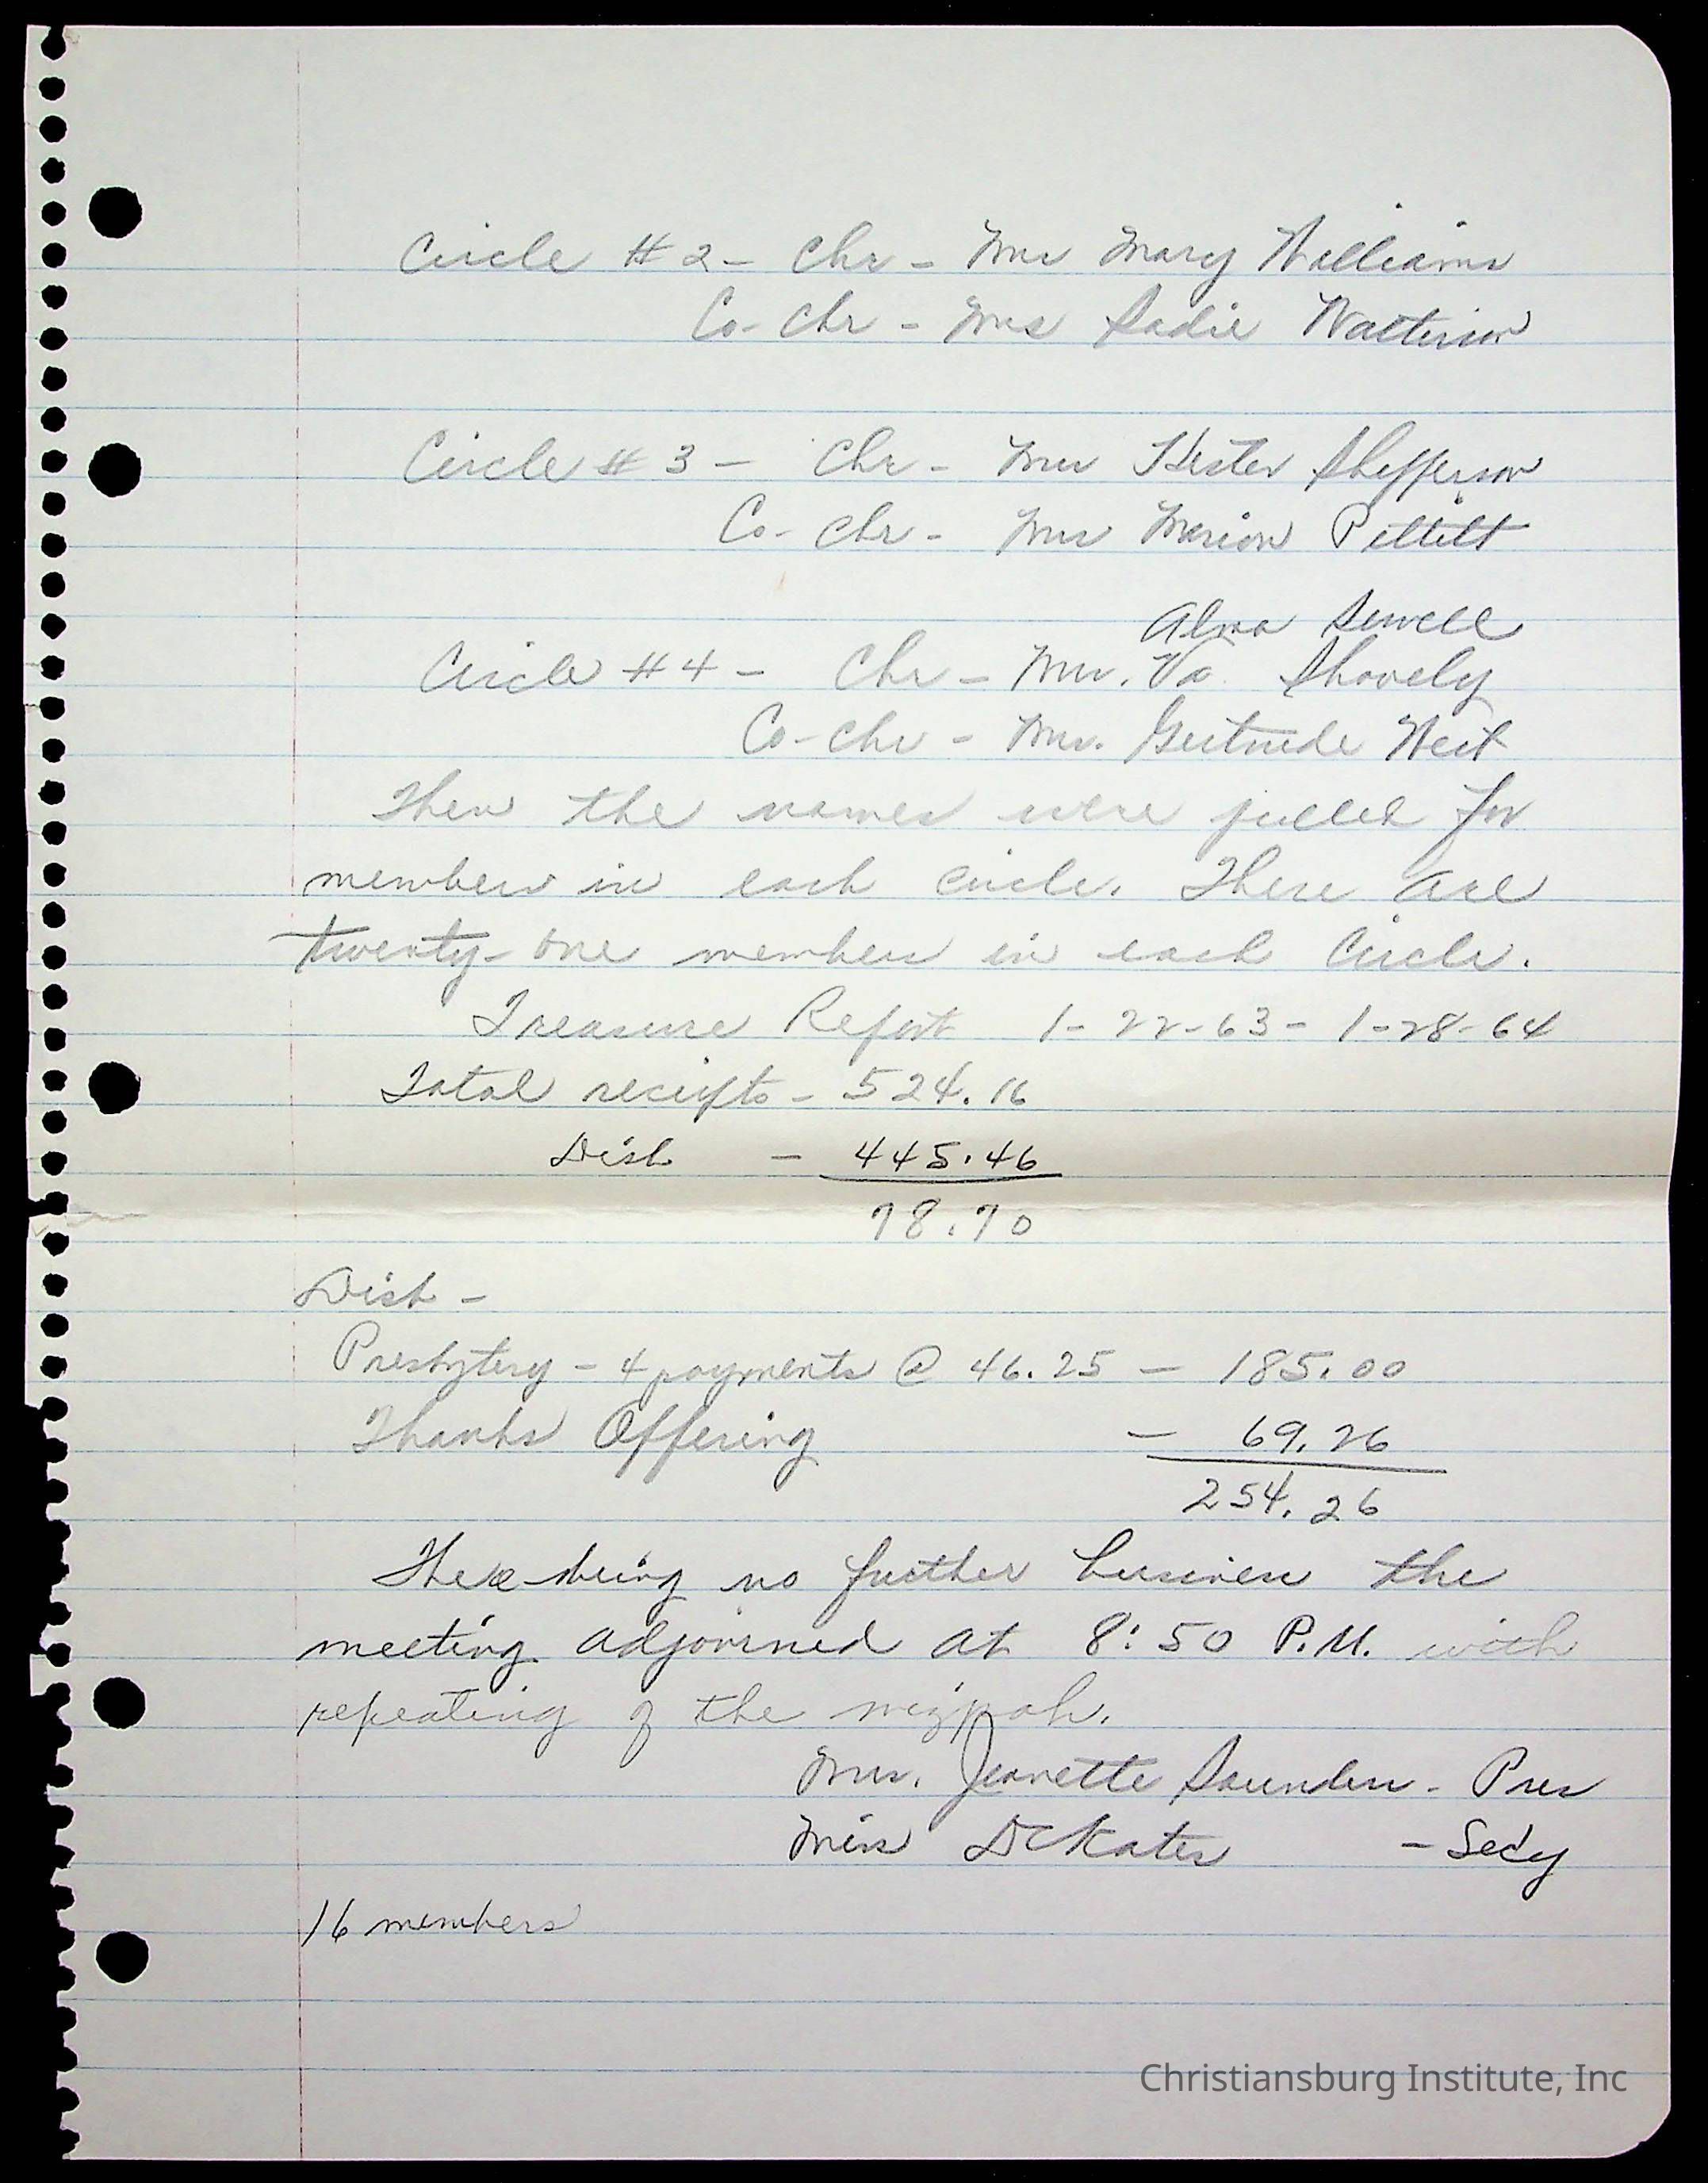 Circle #2 - Chr - Mrs Mary Williams
Co-Chr - Mrs Sadie Watterson
Circle #3 - Chr - Mrs Hester Shefferson
Co-Chr - Mrs Marion Pettitt
Alma Sewell
Circle #4 - Chr - Mrs. Va. Shovely
Co-Chr - Mrs. Gertrude West
Then the names were pulled for
members in each circle. There are
twenty-one members in each Circle.
Treasure Report 1-22-63 - 1-28-64
Total receipts - 524.16
Disb - 445.46
78.70
Disb -
Presbytery - 4 payments @ 46.25 - 185.00
Thanks Offering - 69.26
254.26
There being no further business the
meeting adjourned at 8:50 P.M. with
repeating of the mizpah.
Mrs. Jeanette Saunders - Pres
Miss D Kates - Secy
16 members
Christiansburg Institute, Inc